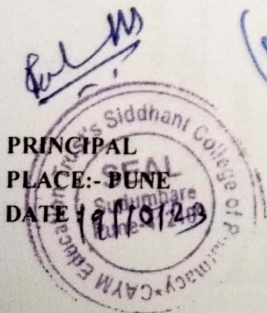 PRINCIPAL
PLACE:- PUNE
DATE 19/10/23
CAYM Education Trust's Siddhant College of Pharmacy *
SEAL
Sudumbare
Pune